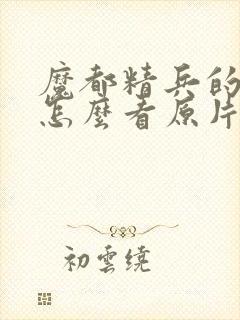 魔都精兵的
怎麼看原片
初雲繞